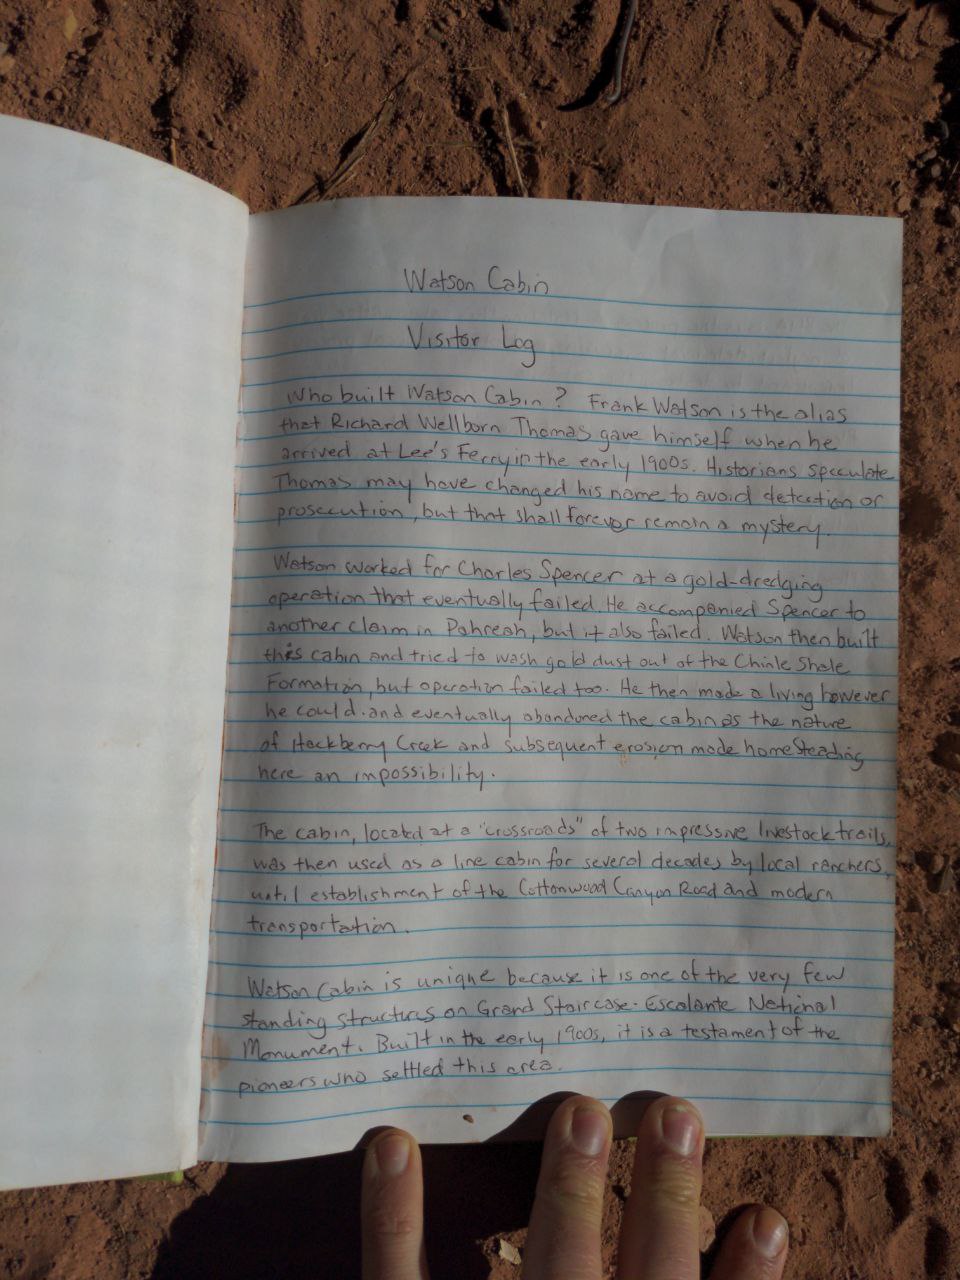 Watson Cabin
Visitor Log
Who built Watson Cabin? Frank Watson is the alias
that Richard Wellborn Thomas gave himself when he
arrived at Lee's Ferry in the early 1900s. Historians speculate
Thomas may have changed his name to avoid detection or
prosecution, but that shall forever remain a mystery.
Watson worked for Charles Spencer at a gold-dredging
operation that eventually failed. He accompanied Spencer to
another claim in Pahreah, but it also failed. Watson then built
this cabin and tried to wash gold dust out of the Chinle Shale
Formation, but operation failed too. He then made a living however
he could and eventually abandoned the cabin as the nature
of Hackberry Creek and subsequent erosion made homesteading
here an impossibility.
The cabin, located at a "crossroads" of two impressive livestock trails,
was then used as a line cabin for several decades by local ranchers,
until establishment of the Cottonwood Canyon Road and modern
transportation.
Watson Cabin is unique because it is one of the very few
standing structures on Grand Staircase-Escalante National
Monument. Built in the early 1900s, it is a testament of the
pioneers who settled this area.